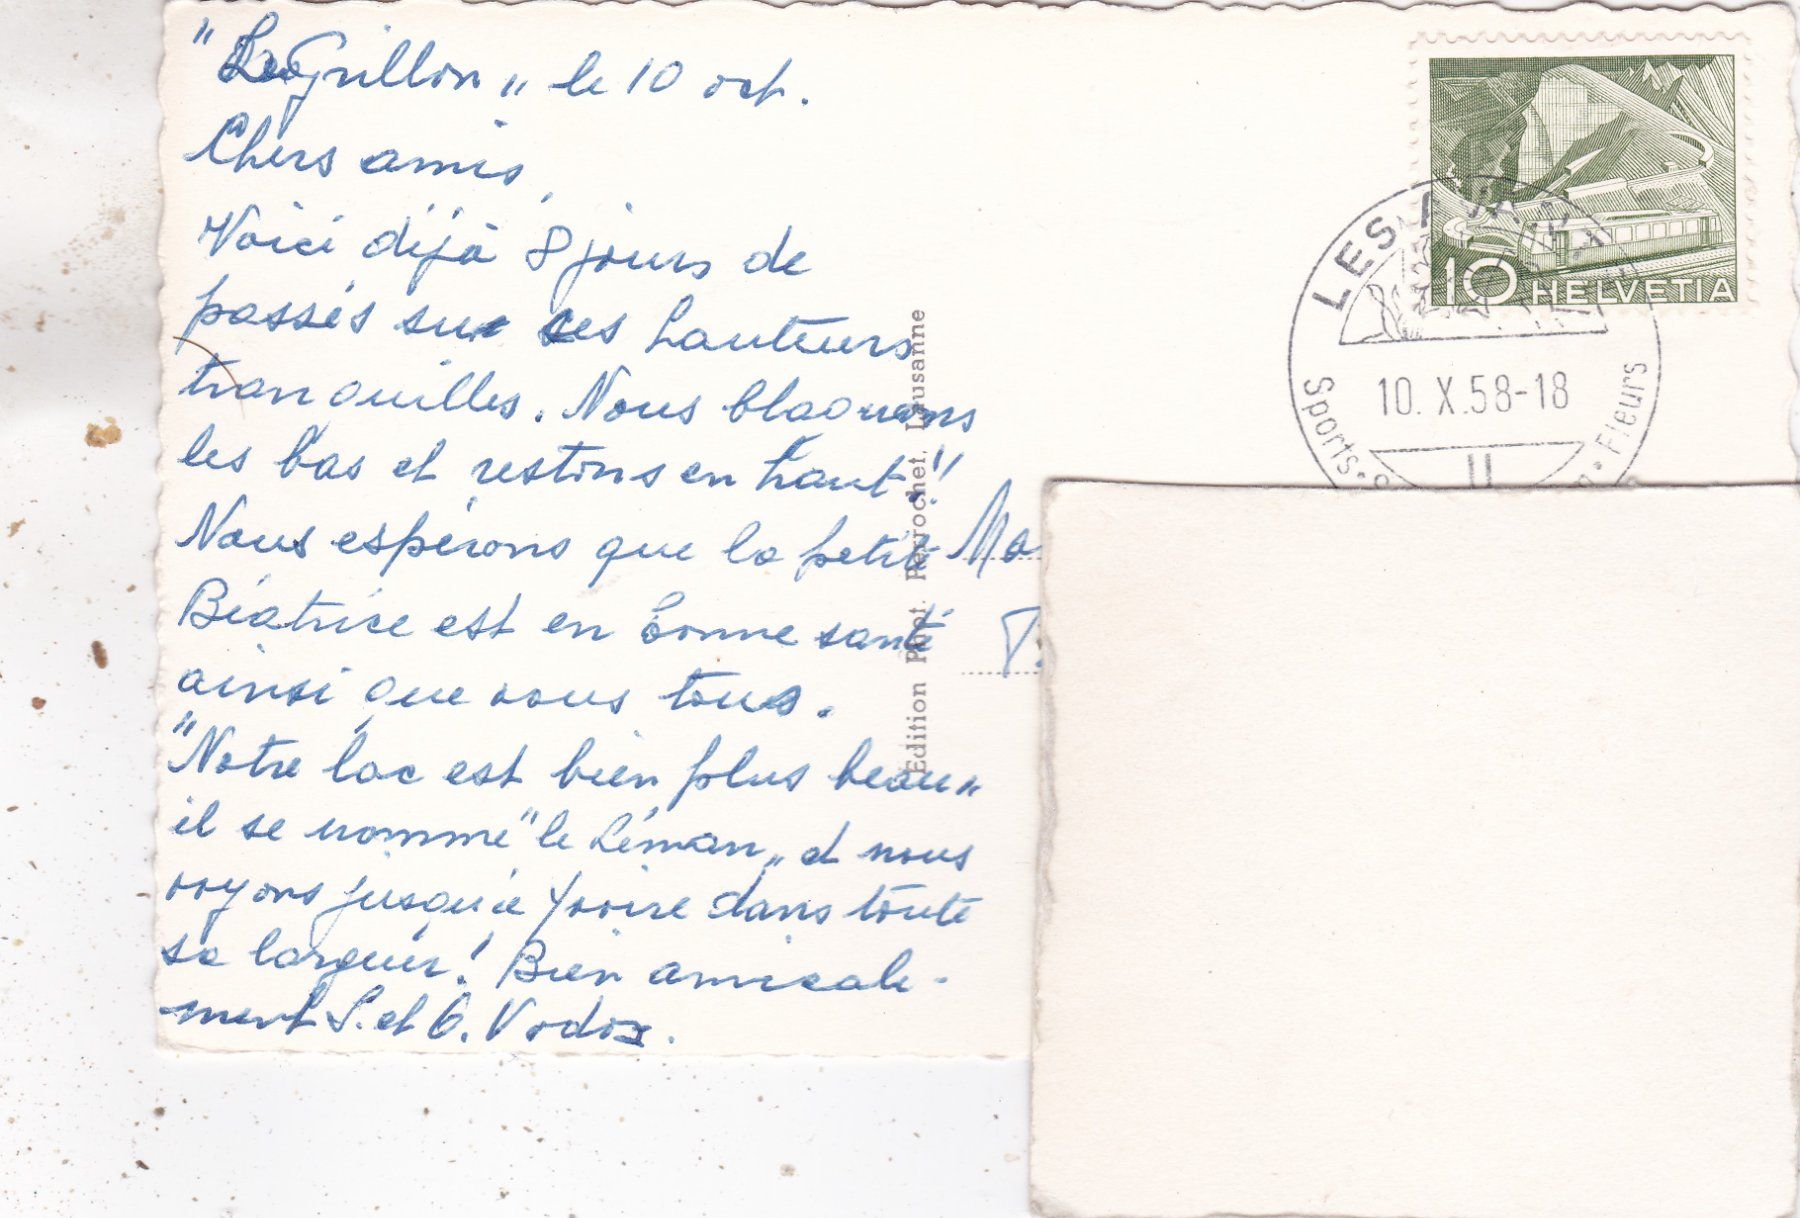 "Le Grillon" le 10 oct.
Chers amis,
Voici déjà 8 jours de
passés sur ces hauteurs
tranquilles. Nous blaquons
les bas et restons en haut!!
Nous espérons que la petite
Béatrice est en bonne santé
ainsi que vous tous.
"Notre lac est bien plus beau"
il se nomme "le Léman" et nous
voyons jusqu'à Yvoire dans toute
sa largeur! Bien amicale-
ment S. et G. Vodoz.
Edition Phot. Perrochet, Lausanne
10 HELVETIA
LES
10. X.58-18
Sports
Fleurs